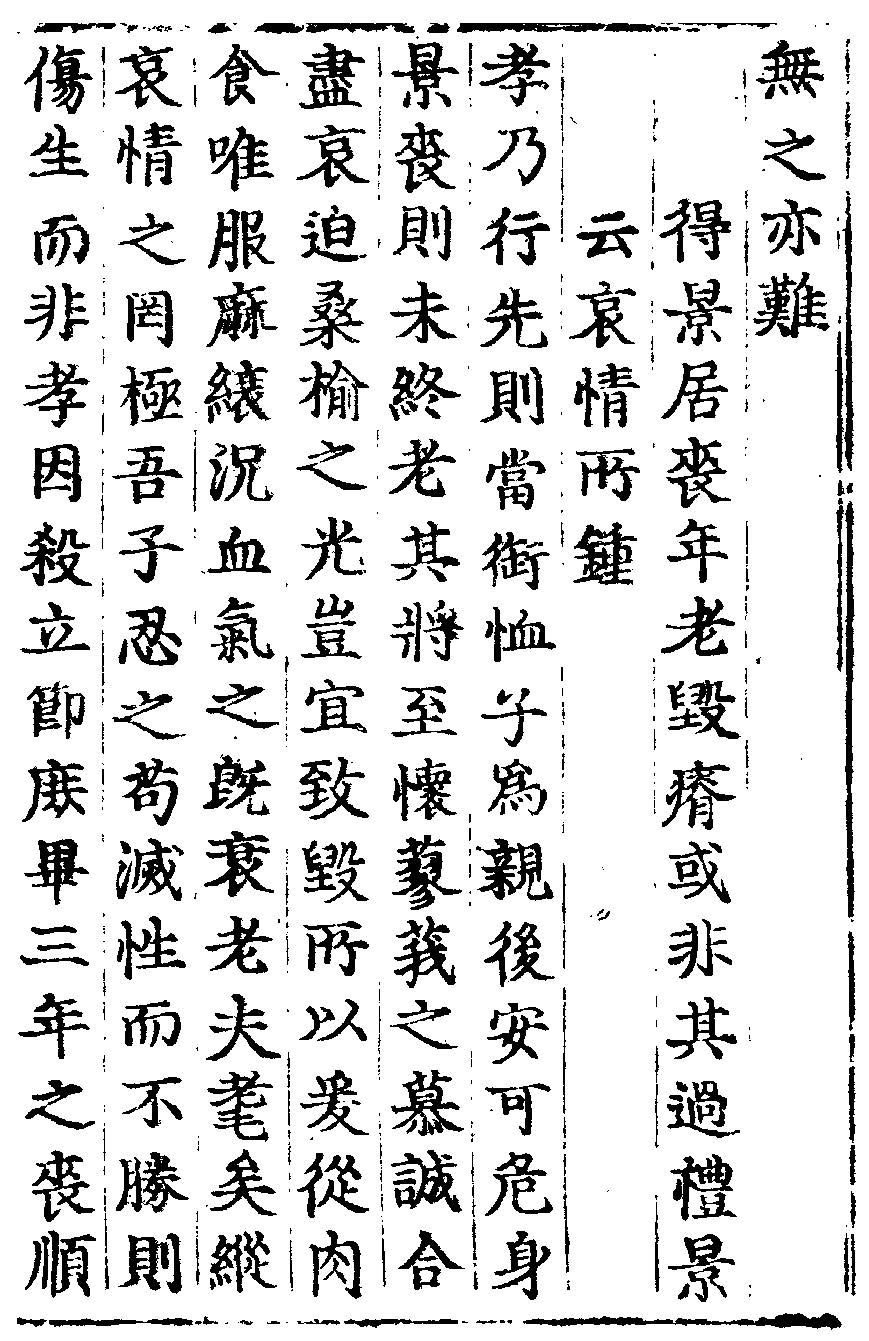 無之亦難
得景居喪年老毀瘠或非其過禮景
云哀情所鍾
孝乃行先則當銜恤子爲親後安可危身
景喪則未終老其將至懷蓼莪之慕誠合
盡哀迫桑榆之光豈宜致毀所以爰從肉
食唯服麻縗況血氣之既衰老夫耄矣縱
哀情之罔極吾子忍之苟滅性而不勝則
傷生而非孝因殺立節庶畢三年之喪順